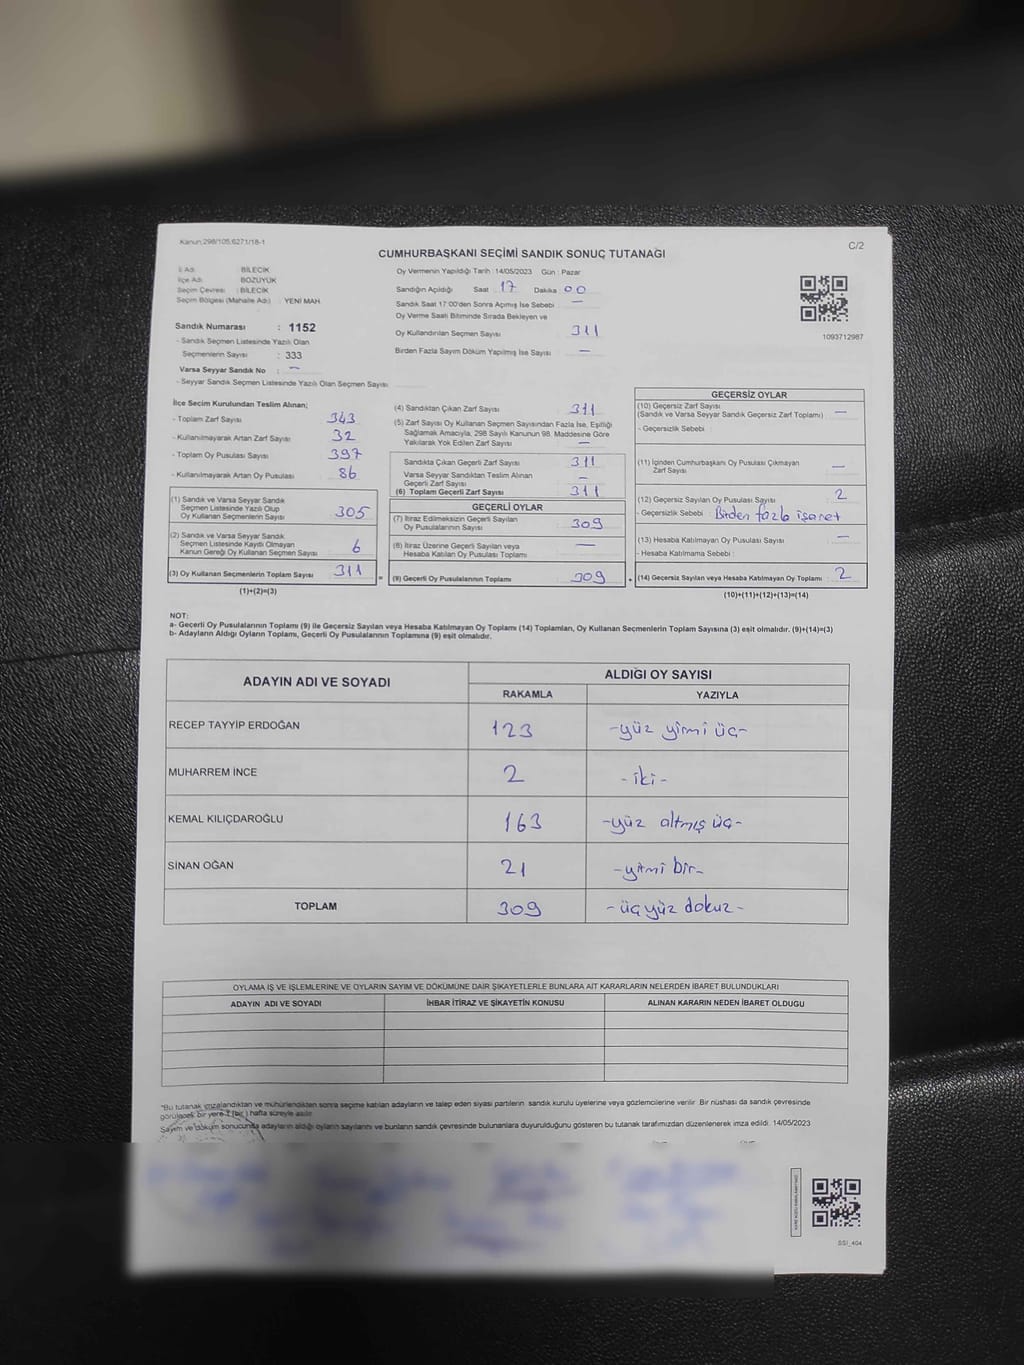 Kanun:298/105,6271/18-1
C/2
CUMHURBAŞKANI SEÇİMİ SANDIK SONUÇ TUTANAĞI
İl Adı : BİLECİK
İlçe Adı : BOZÜYÜK
Seçim Çevresi : BİLECİK
Seçim Bölgesi (Mahalle Adı) : YENİ MAH
Sandık Numarası : 1152
- Sandık Seçmen Listesinde Yazılı Olan
Seçmenlerin Sayısı : 333
Varsa Seyyar Sandık No : —
- Seyyar Sandık Seçmen Listesinde Yazılı Olan Seçmen Sayısı
Oy Vermenin Yapıldığı Tarih : 14/05/2023 Gün : Pazar
Sandığın Açıldığı Saat 17 Dakika 00
Sandık Saat 17:00'den Sonra Açılmış İse Sebebi : —
Oy Verme Saati Bitiminde Sırada Bekleyen ve
Oy Kullandırılan Seçmen Sayısı 311
Birden Fazla Sayım Döküm Yapılmış İse Sayısı —
1093712987
İlçe Seçim Kurulundan Teslim Alınan;
- Toplam Zarf Sayısı 343
- Kullanılmayarak Artan Zarf Sayısı 32
- Toplam Oy Pusulası Sayısı 397
- Kullanılmayarak Artan Oy Pusulası 86
(1) Sandık ve Varsa Seyyar Sandık
Seçmen Listesinde Yazılı Olup
Oy Kullanan Seçmenlerin Sayısı 305
(2) Sandık ve Varsa Seyyar Sandık
Seçmen Listesinde Kayıtlı Olmayan
Kanun Gereği Oy Kullanan Seçmen Sayısı 6
(3) Oy Kullanan Seçmenlerin Toplam Sayısı 311 =
(1)+(2)=(3)
(4) Sandıktan Çıkan Zarf Sayısı 311
(5) Zarf Sayısı Oy Kullanan Seçmen Sayısından Fazla İse, Eşitliği
Sağlamak Amacıyla, 298 Sayılı Kanunun 98. Maddesine Göre
Yakılarak Yok Edilen Zarf Sayısı —
Sandıkta Çıkan Geçerli Zarf Sayısı 311
Varsa Seyyar Sandıktan Teslim Alınan
Geçerli Zarf Sayısı —
(6) Toplam Geçerli Zarf Sayısı 311
GEÇERLİ OYLAR
(7) İtiraz Edilmeksizin Geçerli Sayılan
Oy Pusulalarının Sayısı 309
(8) İtiraz Üzerine Geçerli Sayılan veya
Hesaba Katılan Oy Pusulası Toplamı —
(9) Geçerli Oy Pusulalarının Toplamı 309 +
GEÇERSİZ OYLAR
(10) Geçersiz Zarf Sayısı
(Sandık ve Varsa Seyyar Sandık Geçersiz Zarf Toplamı) —
- Geçersizlik Sebebi :
(11) İçinden Cumhurbaşkanı Oy Pusulası Çıkmayan
Zarf Sayısı —
(12) Geçersiz Sayılan Oy Pusulası Sayısı 2
- Geçersizlik Sebebi : Birden fazla işaret
(13) Hesaba Katılmayan Oy Pusulası Sayısı —
- Hesaba Katılmama Sebebi :
(14) Geçersiz Sayılan veya Hesaba Katılmayan Oy Toplamı 2
(10)+(11)+(12)+(13)=(14)
NOT:
a- Geçerli Oy Pusulalarının Toplamı (9) ile Geçersiz Sayılan veya Hesaba Katılmayan Oy Toplamı (14) Toplamları, Oy Kullanan Seçmenlerin Toplam Sayısına (3) eşit olmalıdır. (9)+(14)=(3)
b- Adayların Aldığı Oyların Toplamı, Geçerli Oy Pusulalarının Toplamına (9) eşit olmalıdır.
ADAYIN ADI VE SOYADI
ALDIĞI OY SAYISI
RAKAMLA YAZIYLA
RECEP TAYYİP ERDOĞAN 123 -yüz yirmi üç-
MUHARREM İNCE 2 -iki-
KEMAL KILIÇDAROĞLU 163 -yüz altmış üç-
SİNAN OĞAN 21 -yirmi bir-
TOPLAM 309 -üçyüz dokuz-
OYLAMA İŞ VE İŞLEMLERİNE VE OYLARIN SAYIM VE DÖKÜMÜNE DAİR ŞİKAYETLERLE BUNLARA AİT KARARLARIN NELERDEN İBARET BULUNDUKLARI
ADAYIN ADI VE SOYADI İHBAR İTİRAZ VE ŞİKAYETİN KONUSU ALINAN KARARIN NEDEN İBARET OLDUĞU
"Bu tutanak imzalandıktan ve mühürlendikten sonra seçime katılan adayların ve talep eden siyasi partilerin sandık kurulu üyelerine veya gözlemcilerine verilir. Bir nüshası da sandık çevresinde
görülecek bir yere 1 (bir) hafta süreyle asılır.
Sayım ve döküm sonucunda adayların aldığı oyların sayılarını ve bunların sandık çevresinde bulunanlara duyurulduğunu gösteren bu tutanak tarafımızdan düzenlenerek imza edildi. 14/05/2023
SSI_404